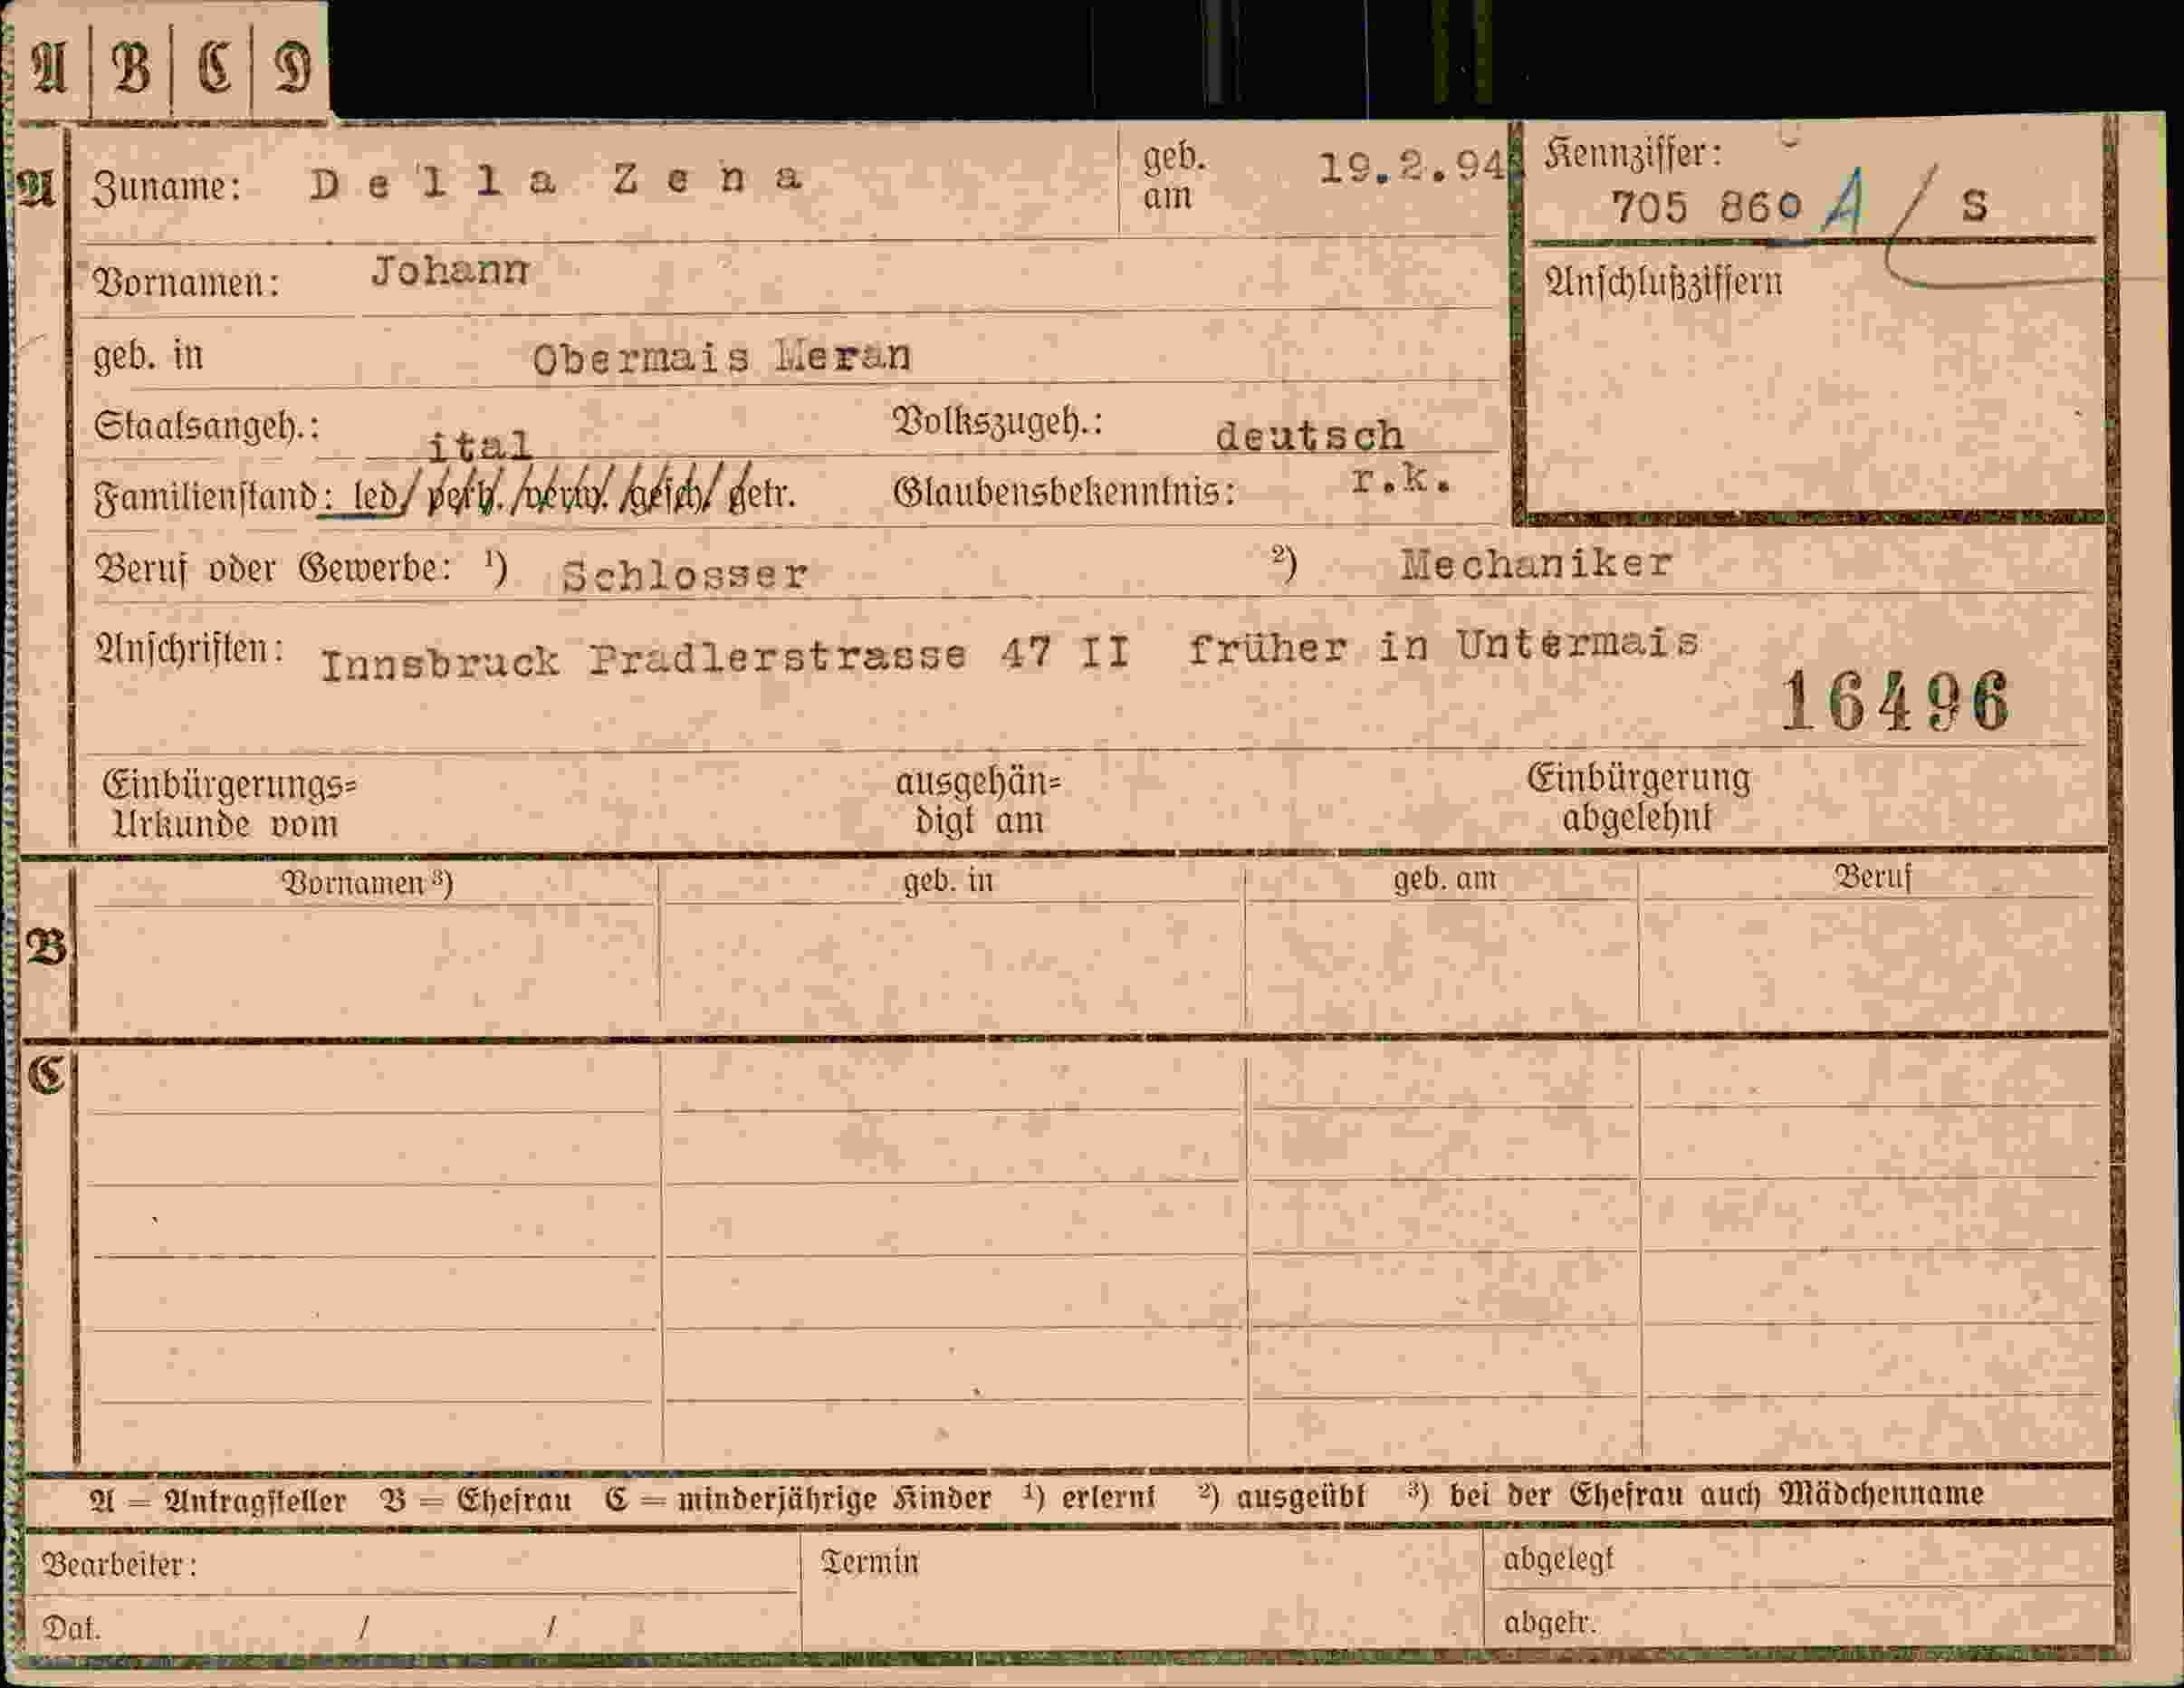 A | B | C | D
A Zuname: Della Zena geb. am 19.2.94 Kennziffer: 705 860 A / S
Vornamen: Johann Anschlußziffern
geb. in Obermais Meran
Staatsangeh.: ital Volkszugeh.: deutsch
Familienstand: led/ verh./verw./gesch/ getr. Glaubensbekenntnis: r.k.
Beruf oder Gewerbe: ¹) Schlosser ²) Mechaniker
Anschriften: Innsbruck Pradlerstrasse 47 II früher in Untermais
16496
Einbürgerungs= ausgehän= Einbürgerung
Urkunde vom digt am abgelehnt
Vornamen ³) geb. in geb. am Beruf
B
C
A = Antragsteller B = Ehefrau C = minderjährige Kinder ¹) erlernt ²) ausgeübt ³) bei der Ehefrau auch Mädchenname
Bearbeiter: Termin abgelegt
Dat. / / abgetr.